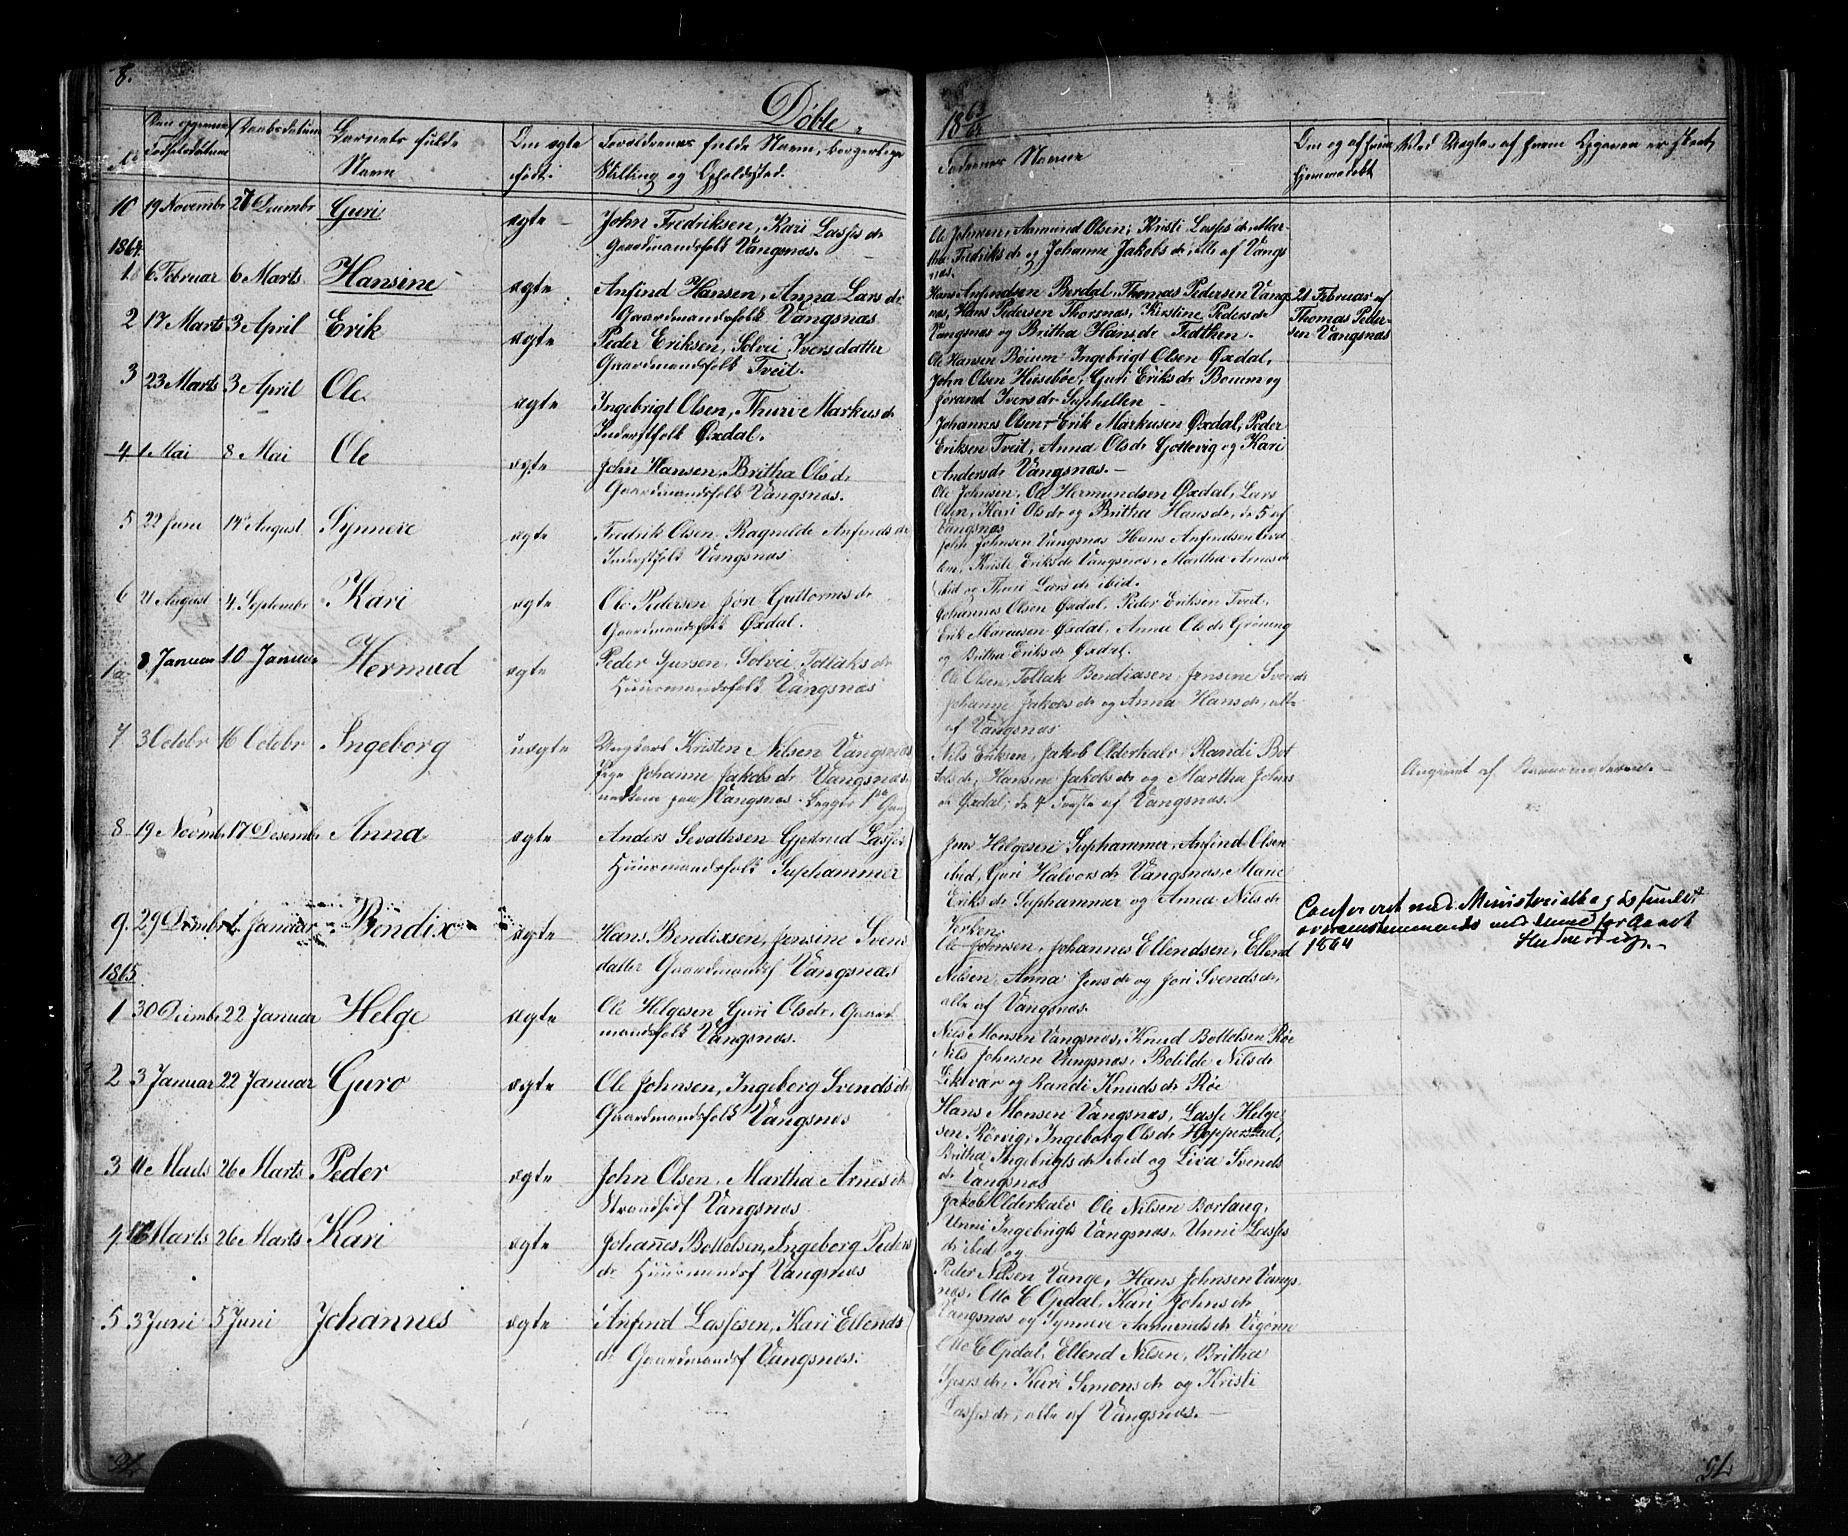 8.
Døbte
1863/65
Barnets fulde
Navn
Om ægte
født.
Forældrenes fulde Navn, borgerlige
Stilling og Opholdssted.
Faddernes Navne
Om og af hvem
hjemmedøbt
10 19 Novembr 27 Decembr Guri ægte John Fredriksen, Kari Lasses dr
Gaardmandsfolk Vangsnæs.
Ole Johnsen, Aamund Olsen, Kristi Lasses dr, Mar-
tha Fredriks dr og Johanne Jakobs dr, alle af Vangs
næs.
1864.
1 6 Februar 6 Marts Hansine ægte Anfind Hansen, Anna Lars dr
Gaardmandsfolk Vangsnæs
Hans Anfindsen Berdal, Thomas Pedersen Vangs
næs, Hans Pedersen Thorsnæs, Kirstine Peders dr
Vangsnæs og Britha Hans dr
21 Februar af
Thomas Peder-
sen Vangsnæs
2 17 Marts 3 April Erik ægte Peder Eriksen, Solvei Iversdatter
Gaardmandsfolk Tveit.
Ole Hansen Böium, Ingebrigt Olsen Øxdal,
John Olsen Husebøe, Guri Eriks dr Boium og
Jorand Ivers dr Suphellen
3 23 Marts 3 April Ole ægte Ingebrigt Olsen, Thuri Markus dr
Inderstfolk Øxdal.
Johannes Olsen, Erik Markusen Øxdal, Peder
Eriksen Tveit, Anna Ols dr Gottevig og Kari
Anders dr Vangsnæs.
4 1 Mai 8 Mai Ole ægte John Hansen, Britha Ols dr
Gaardmandsfolk Vangsnæs.
Ole Johnsen, Ole Hermundsen Øxdal, Lars
Olsen, Kari Ols dr og Britha Hans dr, de 5 af
Vangsnæs
5 22 Juni 14 August Synneve ægte Fredrik Olsen, Ragnilde Anfinds dr
Inderstfolk Vangsnæs
John Johnsen Vangsnæs Hans Anfindsen
Kristi Eriks dr Vangsnæs, Martha Arnes dr
ibid og Thuri Lars dr ibid.
6 21 August 4 Septembr Kari ægte Ole Pedersen Jori Guttorms dr
Gaardmandsfolk Øxdal.
Johannes Olsen Øxdal, Peder Eriksen Tveit,
Erik Markusen Øxdal, Anna Ols dr Gröning
og Britha Eriks dr Øxdal.
1a 8 Januar 10 Januar Hermud ægte Peder Solvei Tollaks dr
Huusmandsfolk Vangsnæs
Ole Olsen, Tollak Bendixsen, Jensine Svends
Johanne Jakobs dr og Anna Hans dr, alle
af Vangsnæs
7 3 Octobr 16 Octobr Ingeborg uægte Ungkarl Kristen Nilsen Vangsnæs
Pige Johanne Jakobs dr Vangsnæs
Vangsnæs. Begges 1ste Gang
Nils Eriksen, Jakob Olderkalv, Randi Bot
tels dr, Hansine Jakobs dr og Martha Johns
dr Øxdal, de 4 første af Vangsnæs.
Angivet af Barnemoderen.
8 19 Novmb 17 Desembr Anna ægte Anders Sevathsen Gjertrud Lasses
Huusmandsfolk Suphammer
Jens Helgesen Suphammer, Anfind Olsen
ibid, Guri Halvors dr Vangsnæs, Marie
Eriks dr Suphammer og Anna Nils dr
9. 29 Dcmbr 1 Januar Bendix ægte Hans Bendixsen, Jensine Svens
datter Gaardmandsf Vangsnæs
Ole Johnsen, Johannes Ellendsen, Ellend
Nilsen, Anna Jens dr og Jori Svends dr,
alle af Vangsnæs.
Confereret med Ministerialbog og funder
overensstemmende med denne for Aaret
1864
1865
1 30 Decmbr 22 Januar Helge ægte Ole Helgesen, Guri Ols dr, Gaard
mandsfolk Vangsnæs.
Nils Monsen Vangsnæs, Knud Bottolsen Røe
Nils Johnsen Vangsnæs, Botilde Nils dr
Liktvar og Randi Knuds dr Røe
2 3 Januar 22 Januar Guro ægte Ole Johnsen, Ingeborg Svends dr
Gaardmandsfolk Vangsnæs
Hans Monsen Vangsnæs, Lasse Helge
sen Rörvig, Ingeborg Ols dr Hopperstad,
Britha Ingebrigts dr ibid og Liva Svends
dr Vangsnæs
3 11 Marts 26 Marts Peder ægte John Olsen, Martha Arnes dr
Strandsidf Vangsnæs
Jakob Olderkalv Ole Nilsen Bortaug,
Unni Ingebrigts Vangsnæs, Unni Lasses
dr ibid og
4 16 Marts 26 Marts Kari ægte Johannes Bottolsen, Ingeborg Peders
dr Huusmandsf Vangsnæs
Peder Nilsen Vange, Hans Johnsen Vangs
næs, Otto C Opdal, Kari Johns dr
Vangsnæs og Synneve Aamunds dr
5 3 Juni 5 Juni Johannes ægte Anfind Lassesen, Kari Ellends
dr Gaardmandsf Vangsnæs.
Otto C Opdal, Ellend Nilsen, Britha
Kari Simons dr og Kristi
Lasses dr, alle af Vangsnæs.